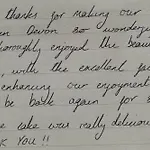 thanks for making our
in Devon so wonderful
thoroughly enjoyed the
, with the excellent
enhancing our enjoyment
be back again for
cake was really delicious
YOU!!